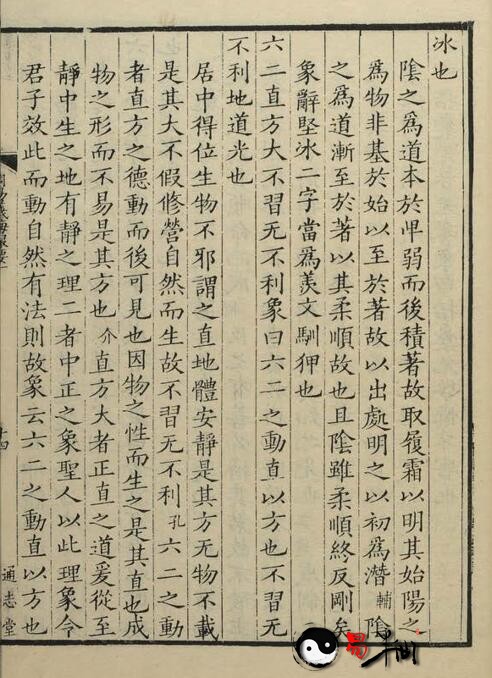 冰也
陰之爲道本於卑弱而後積著故取履霜以明其始陽之
爲物非基於始以至於著故以出處明之以初爲潛輔陰
之爲道漸至於著以其柔順故也且陰雖柔順終反剛矣
象辭堅冰二字當爲羨文馴狎也
六二直方大不習无不利象曰六二之動直以方也不習无
不利地道光也
居中得位生物不邪謂之直地體安靜是其方无物不載
是其大不假修營自然而生故不習无不利孔六二之動
者直方之德動而後可見也因物之性而生之是其直也成
物之形而不易是其方也介直方大者正直之道爰從至
靜中生之地有靜之理二者中正之象聖人以此理象令
君子效此而動自然有法則故象云六二之動直以方也
十四
通志堂
易